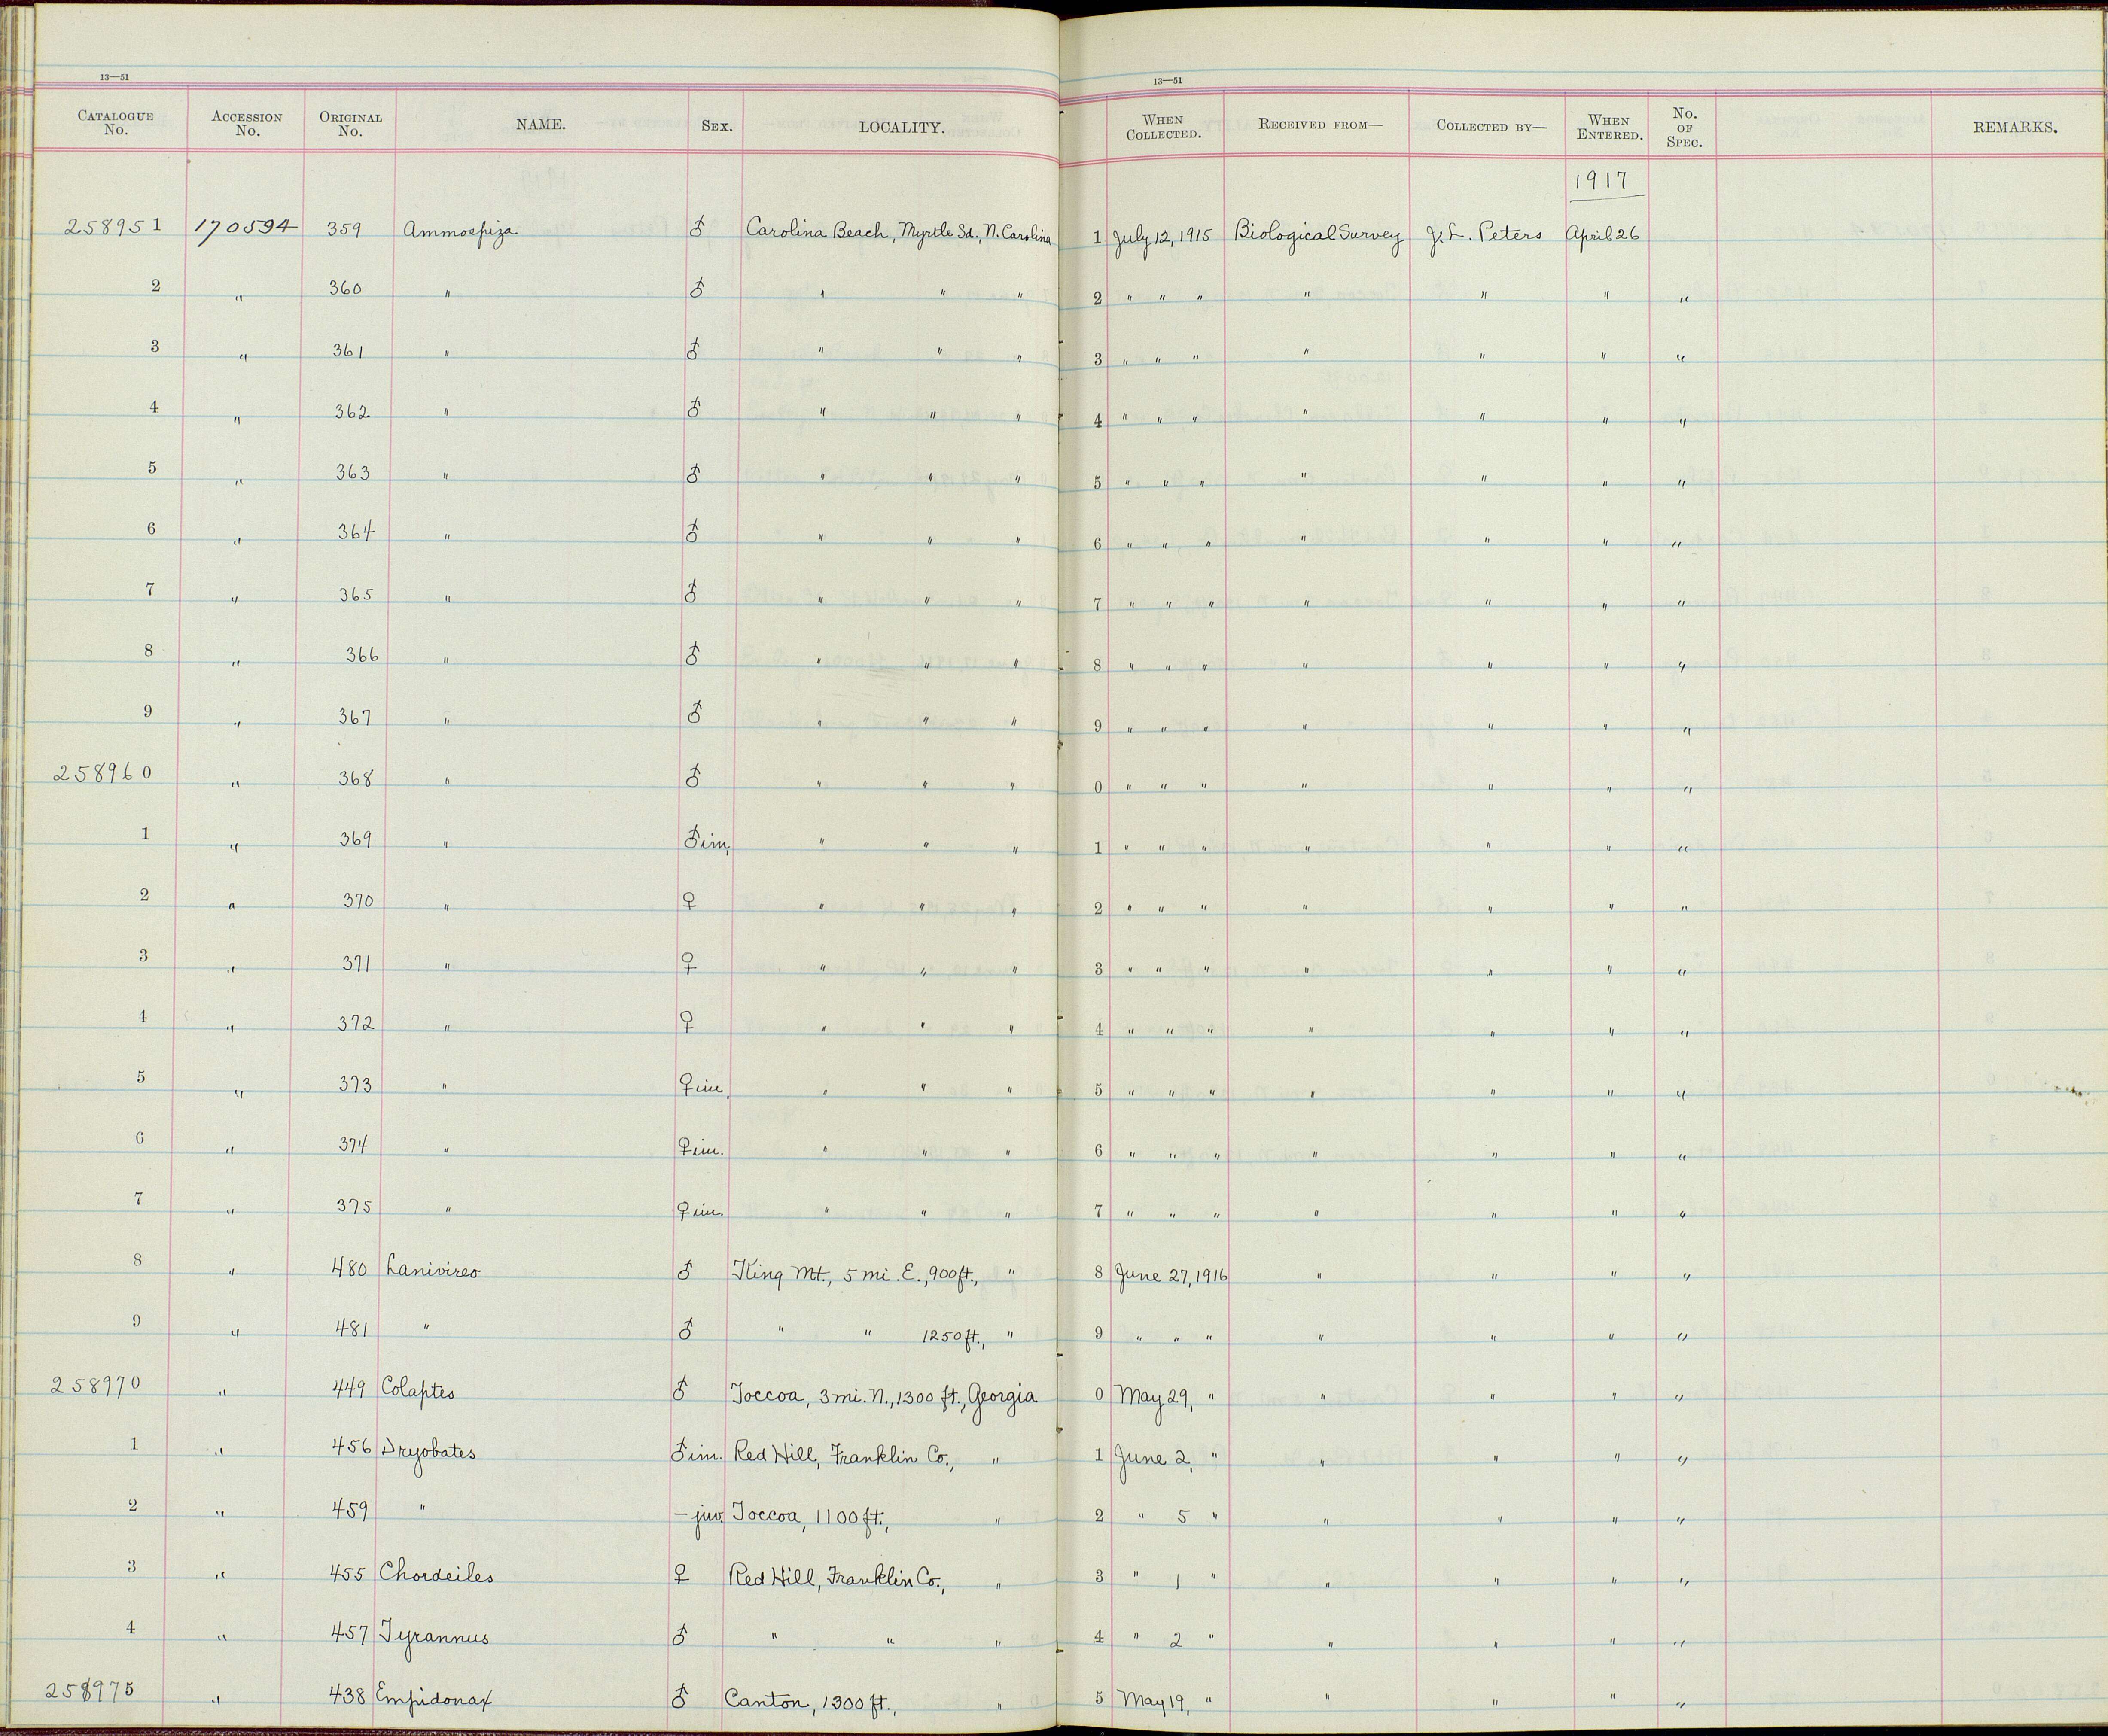 13—51 13—51
CATALOGUE No. ACCESSION No. ORIGINAL No. NAME. SEX. LOCALITY. WHEN COLLECTED. RECEIVED FROM— COLLECTED BY— WHEN ENTERED. No. OF SPEC. REMARKS.
1917
258951 170594 359 Ammospiza ♂ Carolina Beach, Myrtle Sd., N. Carolina 1 July 12, 1915 Biological Survey J. L. Peters April 26
2 " 360 " ♂ " " " 2 " " " " " " "
3 " 361 " ♂ " " " 3 " " " " " " "
4 " 362 " ♂ " " " 4 " " " " " " "
5 " 363 " ♂ " " " 5 " " " " " " "
6 " 364 " ♂ " " " 6 " " " " " " "
7 " 365 " ♂ " " " 7 " " " " " " "
8 " 366 " ♂ " " " 8 " " " " " " "
9 " 367 " ♂ " " " 9 " " " " " " "
258960 " 368 " ♂ " " " 0 " " " " " " "
1 " 369 " ♂ im. " " " 1 " " " " " " "
2 " 370 " ♀ " " " 2 " " " " " " "
3 " 371 " ♀ " " " 3 " " " " " " "
4 " 372 " ♀ " " " 4 " " " " " " "
5 " 373 " ♀ im. " " " 5 " " " " " " "
6 " 374 " ♀ im. " " " 6 " " " " " " "
7 " 375 " ♀ im. " " " 7 " " " " " " "
8 " 480 Lanivireo ♂ King Mt., 5 mi. E., 900 ft., " 8 June 27, 1916 " " " "
9 " 481 " ♂ " " 1250 ft., " 9 " " " " " " "
258970 " 449 Colaptes ♂ Toccoa, 3 mi. N., 1300 ft., Georgia 0 May 29, " " " " "
1 " 456 Dryobates ♂ im. Red Hill, Franklin Co., " 1 June 2, " " " " "
2 " 459 " — juv. Toccoa, 1100 ft., " 2 " 5 " " " " "
3 " 455 Chordeiles ♀ Red Hill, Franklin Co., " 3 " 1 " " " " "
4 " 457 Tyrannus ♂ " " " 4 " 2 " " " " "
258975 " 438 Empidonax ♂ Canton, 1300 ft., " 5 May 19, " " " " "